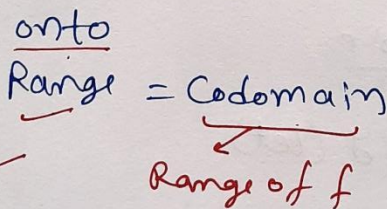 onto
Range = Codomain
Range of f